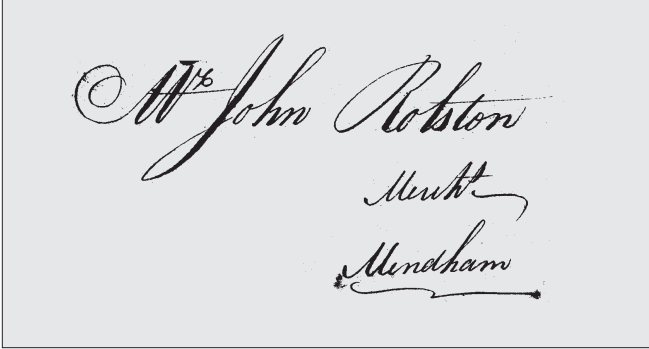 Mr John Rolston
Mercht
Mendham